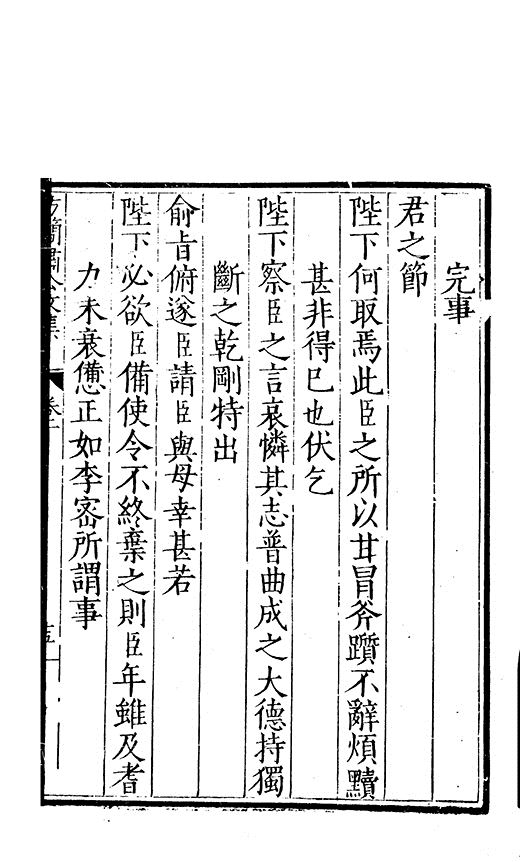 完事
君之節
陛下何取焉此臣之所以甘冒斧躓不辭煩黷
甚非得已也伏乞
陛下察臣之言哀憐其志普曲成之大德持獨
斷之乾剛特出
俞旨俯遂臣請臣與母幸甚若
陛下必欲臣備使令不終棄之則臣年雖及耆
力未衰憊正如李密所謂事
方簡肅公文集